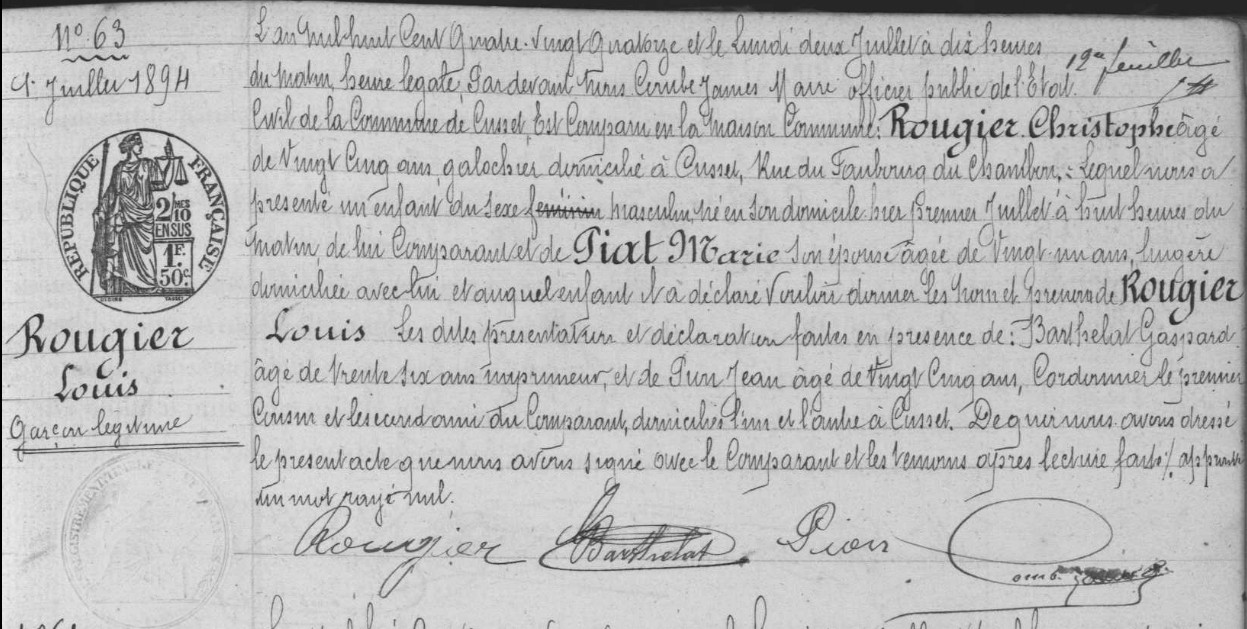 N° 63
1er Juillet 1894
RÉPUBLIQUE FRANÇAISE
2/10MES
EN SUS
1F.
50c.
Rougier
Louis
Garçon legitime
12e feuillet
L'an mil huit Cent Quatre-Vingt Quatorze et le Lundi deux Juillet à dix heures
du matin, heure legale, Pardevant nous James Maire officier public de l'Etat
Civil de la Commune de Cusset, Est Comparu en la maison Commune: Rougier Christophe âgé
de Vingt Cinq ans, galochier domicilié à Cusset, Rue du Faubourg du Chambon, Lequel nous a
presenté un enfant du sexe feminin masculin né en son domicile hier premier Juillet à huit heures du
matin, de lui Comparant et de Piat Marie son épouse âgée de Vingt un ans, lingère
domiciliée avec lui et auquel enfant il à déclaré Vouloir donner les nom et prenoms de Rougier
Louis Les dites présentation et déclaration faites en presence de: Barthelat Gaspard
âgé de trente six ans imprimeur, et de Pion Jean âgé de Vingt Cinq ans, Cordonnier le premier
Cousin et le second ami du Comparant, domiciliés l'un et l'autre à Cusset. De qui nous avons dressé
le present acte que nous avons signé avec le Comparant et les temoins apres lecture faite ./. approuvé
un mot rayé nul.
Rougier Barthelat Pion